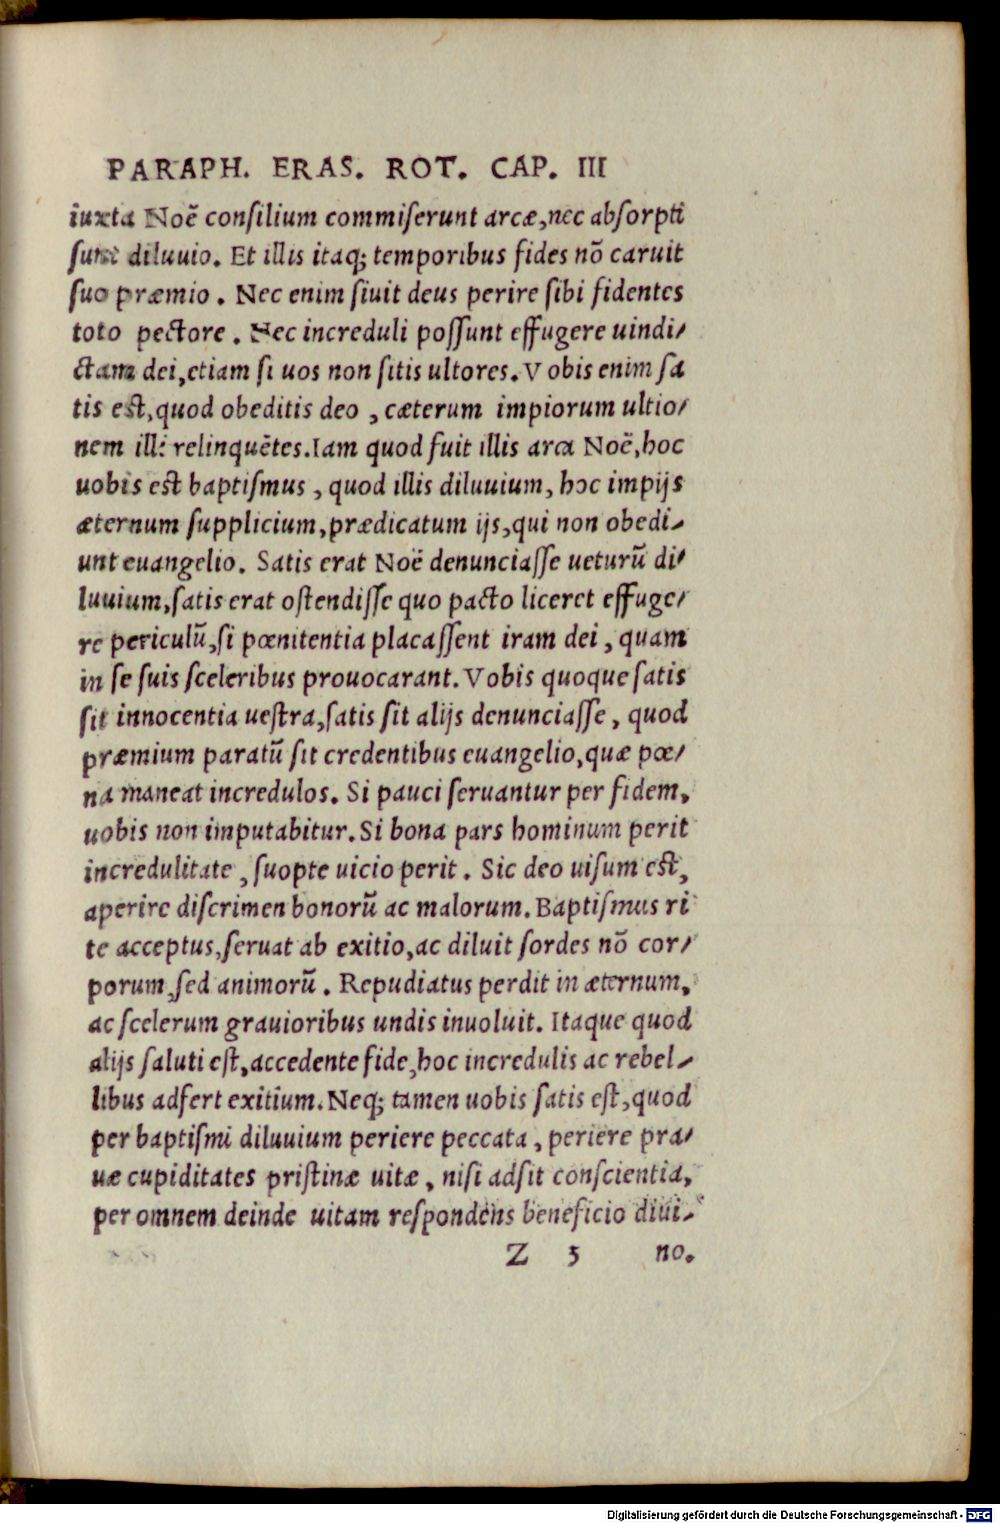 PARAPH. ERAS. ROT. CAP. III
iuxta Noē conſilium commiſerunt arcæ,nec abſorpti
ſunt diluuio. Et illis itaq; temporibus fides nō caruit
ſuo præmio. Nec enim ſiuit deus perire ſibi fidentes
toto pectore. Nec increduli poſſunt effugere uindi/
ctam dei,etiam ſi uos non ſitis ultores.Vobis enim ſa
tis eſt,quod obeditis deo, cæterum impiorum ultio/
nem illi relinquētes.Iam quod fuit illis arca Noë,hoc
uobis eſt baptiſmus, quod illis diluuium, hoc impijs
æternum ſupplicium,prædicatum ijs,qui non obedi/
unt euangelio. Satis erat Noë denunciaſſe ueturū di/
luuium,ſatis erat oſtendiſſe quo pacto liceret effuge/
re periculū,ſi pœnitentia placaſſent iram dei, quam
in ſe ſuis ſceleribus prouocarant.Vobis quoque ſatis
ſit innocentia ueſtra,ſatis ſit alijs denunciaſſe, quod
præmium paratū ſit credentibus euangelio,quæ pœ/
na maneat incredulos. Si pauci ſeruantur per fidem,
uobis non imputabitur.Si bona pars hominum perit
incredulitate, ſuopte uicio perit. Sic deo uiſum eſt,
aperire diſcrimen bonorū ac malorum.Baptiſmus ri
te acceptus,ſeruat ab exitio,ac diluit ſordes nō cor/
porum,ſed animorū. Repudiatus perdit in æternum,
ac ſcelerum grauioribus undis inuoluit. Itaque quod
alijs ſaluti eſt,accedente fide,hoc incredulis ac rebel/
libus adfert exitium.Neq; tamen uobis ſatis eſt,quod
per baptiſmi diluuium periere peccata, periere pra/
uæ cupiditates priſtinæ uitæ, niſi adſit conſcientia,
per omnem deinde uitam reſpondens beneficio diui/
Z 3 no.
Digitalisierung gefördert durch die Deutsche Forschungsgemeinschaft - DFG